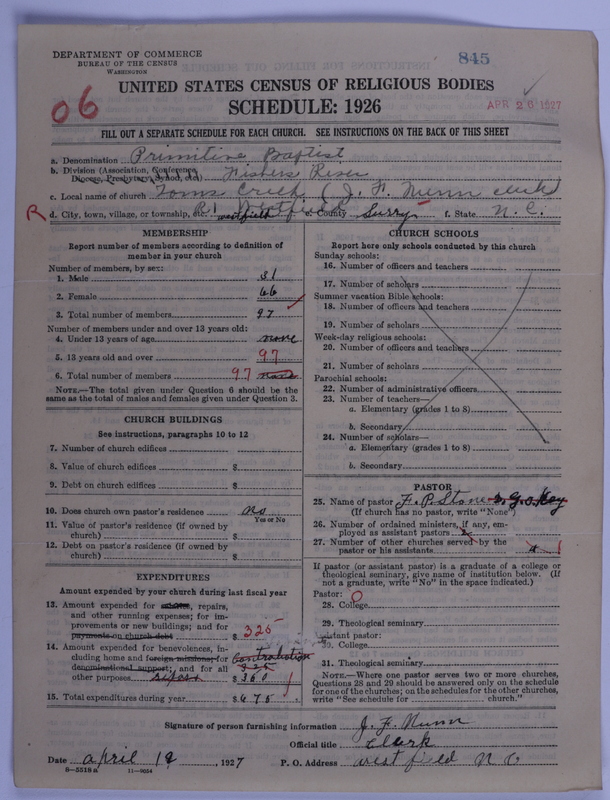 DEPARTMENT OF COMMERCE
BUREAU OF THE CENSUS
WASHINGTON
845
UNITED STATES CENSUS OF RELIGIOUS BODIES
SCHEDULE: 1926
06
APR 26 1927
FILL OUT A SEPARATE SCHEDULE FOR EACH CHURCH. SEE INSTRUCTIONS ON THE BACK OF THIS SHEET
a. Denomination Primitive Baptist
b. Division (Association, Conference, Diocese, Presbytery, Synod, etc.) Fishers River
c. Local name of church Toms Creek (J. F. Nunn clerk)
R d. City, town, village, or township, etc. R1 Westfield westfield e. County Surry f. State N. C.
MEMBERSHIP
Report number of members according to definition of
member in your church
Number of members, by sex:
1. Male 31
2. Female 66
3. Total number of members 97
Number of members under and over 13 years old:
4. Under 13 years of age none
5. 13 years old and over 97
6. Total number of members 97 none
NOTE.—The total given under Question 6 should be the
same as the total of males and females given under Question 3.
CHURCH BUILDINGS
See instructions, paragraphs 10 to 12
7. Number of church edifices
8. Value of church edifices $
9. Debt on church edifices $
10. Does church own pastor's residence no
Yes or No
11. Value of pastor's residence (if owned by
church) $
12. Debt on pastor's residence (if owned by
church) $
EXPENDITURES
Amount expended by your church during last fiscal year
13. Amount expended for salaries, repairs,
and other running expenses; for im-
provements or new buildings; and for
payments on church debt $ 325
14. Amount expended for benevolences, in-
cluding home and foreign missions; for
denominational support; and for all
other purposes $ 360
Contribution
325
15. Total expenditures during year $ 475
CHURCH SCHOOLS
Report here only schools conducted by this church
Sunday schools:
16. Number of officers and teachers
17. Number of scholars
Summer vacation Bible schools:
18. Number of officers and teachers
19. Number of scholars
Week-day religious schools:
20. Number of officers and teachers
21. Number of scholars
Parochial schools:
22. Number of administrative officers
23. Number of teachers—
a. Elementary (grades 1 to 8)
b. Secondary
24. Number of scholars—
a. Elementary (grades 1 to 8)
b. Secondary
PASTOR
25. Name of pastor F. P. Stone
(If church has no pastor, write "None")
26. Number of ordained ministers, if any, em-
ployed as assistant pastors
27. Number of other churches served by the
pastor or his assistants 4 1
If pastor (or assistant pastor) is a graduate of a college or
theological seminary, give name of institution below. (If
not a graduate, write "No" in the space indicated.)
Pastor: 0
28. College
29. Theological seminary
Assistant pastor:
30. College
31. Theological seminary
NOTE.—Where one pastor serves two or more churches,
Questions 28 and 29 should be answered only on the schedule
for one of the churches; on the schedules for the other churches,
write "See schedule for church."
Signature of person furnishing information J. F. Nunn
Official title clerk
Date april 18, 1927 P. O. Address westfield N C
8—5518a 11—9034